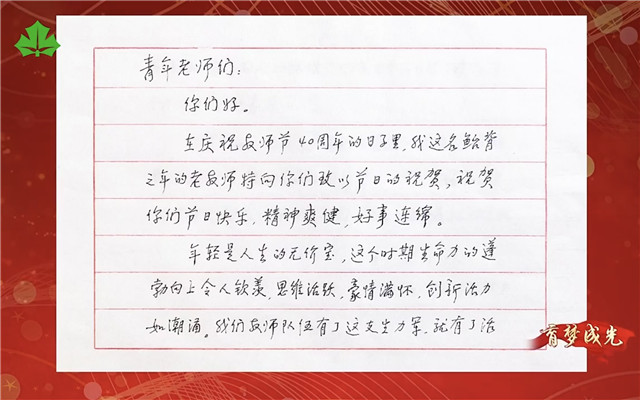 青年老师们:
你们好。
在庆祝教师节40周年的日子里,我这名鲐背
之年的老教师特向你们致以节日的祝贺,祝贺
你们节日快乐,精神爽健,好事连绵。
年轻是人生的无价宝,这个时期生命力的蓬
勃向上令人钦羡,思维活跃,豪情满怀,创新活力
如潮涌。我们教师队伍有了这支生力军,就有了活
育梦成光